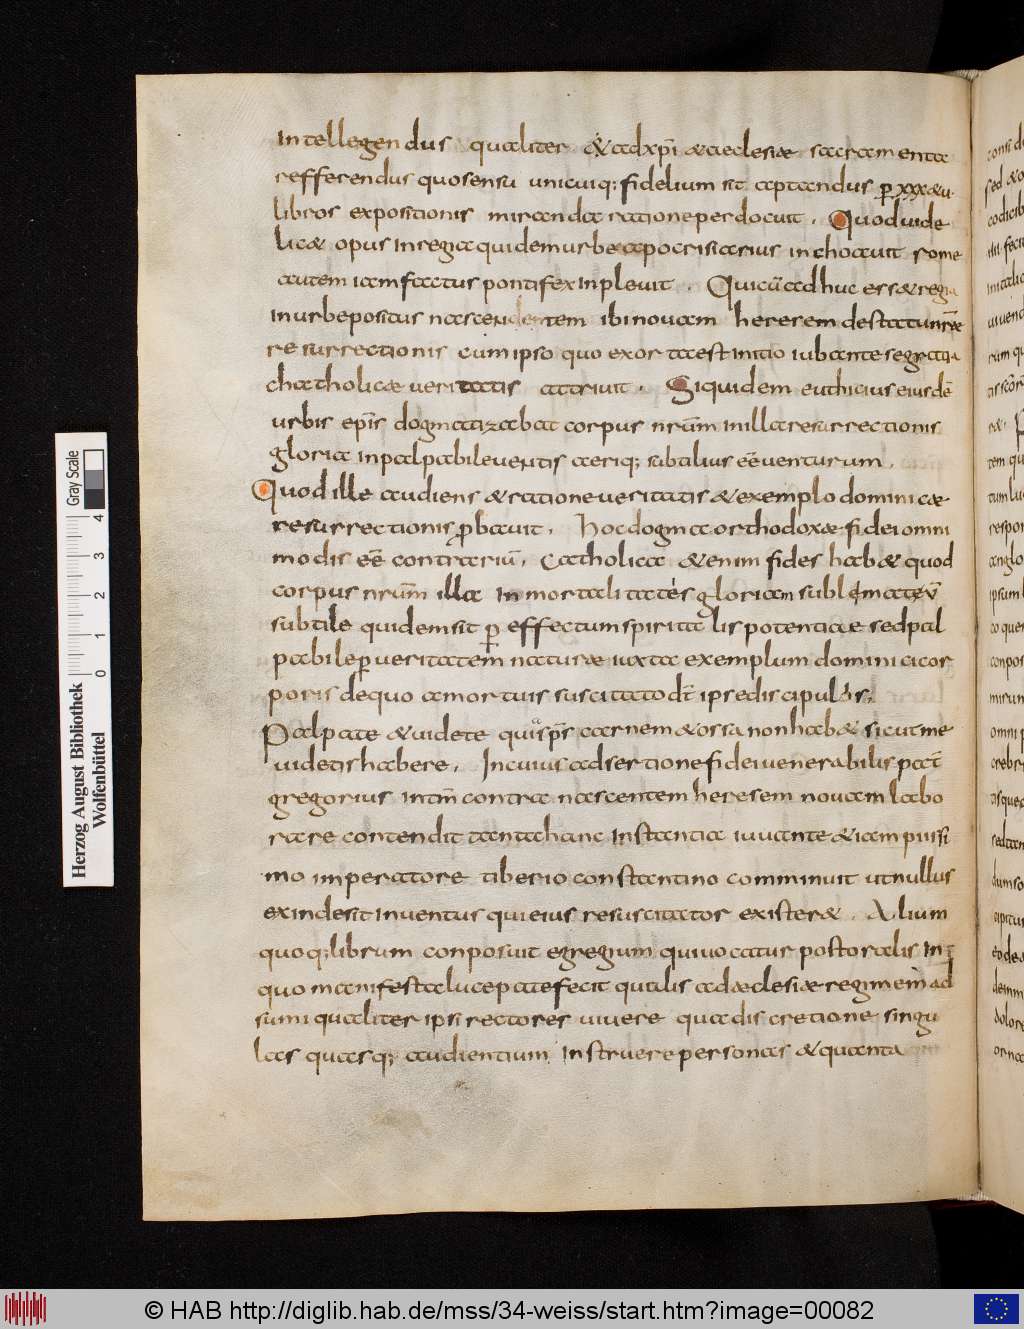 Intellegendus qualiter & ad xp̄i & aeclesiae sacramenta
refferendus quo sensu unicuiq; fidelium sit aptandus p̄ xxx & u.
libros expositionis miranda ratione perdocuit. Quod uide
lic& opus in regia quidem urbe apocrisiarius inchoauit rome
autem iam factus pontifex inpleuit. Qui cū adhuc ess& regia
in urbe positus nascendentem ibi nouam heresem de statu nr̄ae
resurrectionis cum ipso quo exorta est initio iubante se gratia
chatholicae ueritatis atriuit. Siquidem euthicius eiusdē
urbis ep̄is dogmatizabat corpus nr̄um in illa resurrectionis
gloria inpalpabile uentis aeriq; subtilius eē uenturum.
Quod ille audiens & ratione ueritatis & exemplo dominicae
resurrectionis p̄bauit. Hoc dogma orthodoxae fidei omni
modis eē contrariū. Catholica & enim fides hab& quod
corpus nr̄um illa inmortalitatis gloriam sublimatū
subtile quidem sit p̄ effectum spiritalis potentiae sed pal
pabile p̄ ueritatem naturae iuxta exemplum dominici cor
poris de quo a mortuis suscitato dt̄ ipse discipulis.
Palpate & uidete quia sp̄s carnem & ossa non hab& sicut me
uidetis habere. In cuius adsertione fidei uenerabilis pat̄
gregorius intm̄ contra nascentem heresem nouam labo
rare contendit tanta hanc instantia iuuante & iam piissi
mo imperatore tiberio constantino comminuit ut nullus
exinde sit inuentus qui eius resuscitator exister&. Alium
quoq; librum conposuit egregium qui uocatur pastoralis in
quo manifesta luce patefecit qualis ad aeclesiae regimen ad
sumi qualiter ipsi rectores uiuere qua discretione singu
las quasq; audientium instruere personas & quanta
Herzog August Bibliothek
Wolfenbüttel
Gray Scale
0 1 2 3 4
© HAB http://diglib.hab.de/mss/34-weiss/start.htm?image=00082